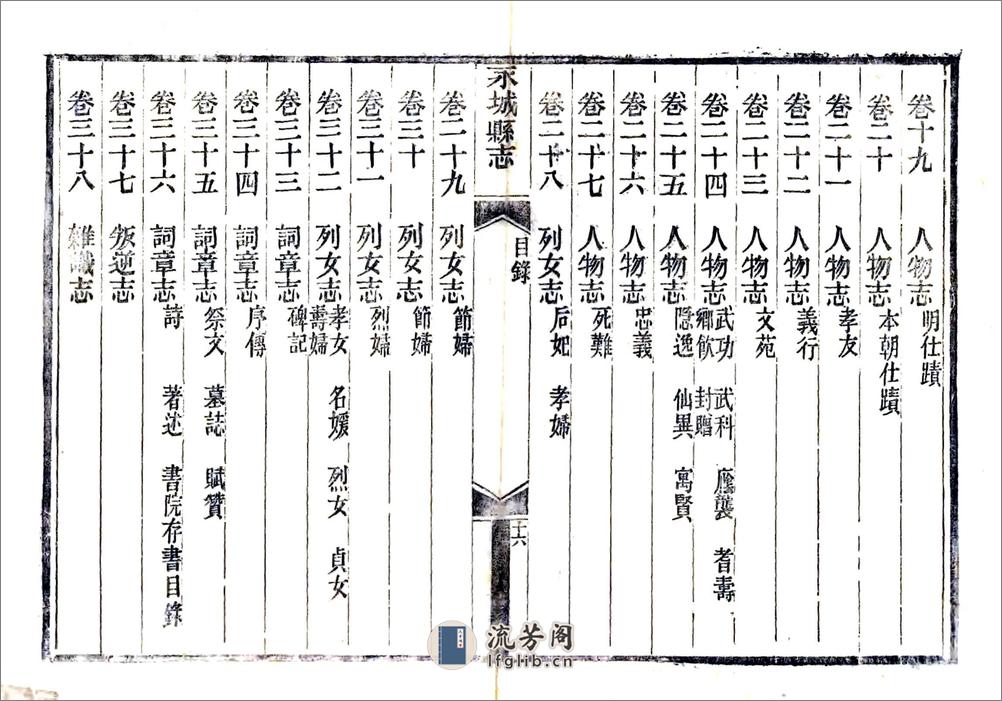 卷十九 人物志 明仕蹟
卷二十 人物志 本朝仕蹟
卷二十一 人物志 孝友
卷二十二 人物志 義行
卷二十三 人物志 文苑
卷二十四 人物志 武功 武科 廕襲 耆壽
鄉飲 封贈
卷二十五 人物志 隱逸 仙異 寓賢
卷二十六 人物志 忠義
卷二十七 人物志 死難
卷二十八 列女志 后妃 孝婦
永城縣志
目錄
十六
卷二十九 列女志 節婦
卷三十 列女志 節婦
卷三十一 列女志 烈婦
卷三十二 列女志 孝女 名媛 烈女 貞女
壽婦
卷三十三 詞章志 碑記
卷三十四 詞章志 序傳
卷三十五 詞章志 祭文 墓誌 賦贊
卷三十六 詞章志 詩 著述 書院存書目錄
卷三十七 叛逆志
卷三十八 雜識志
流芳阁
lfglib.cn